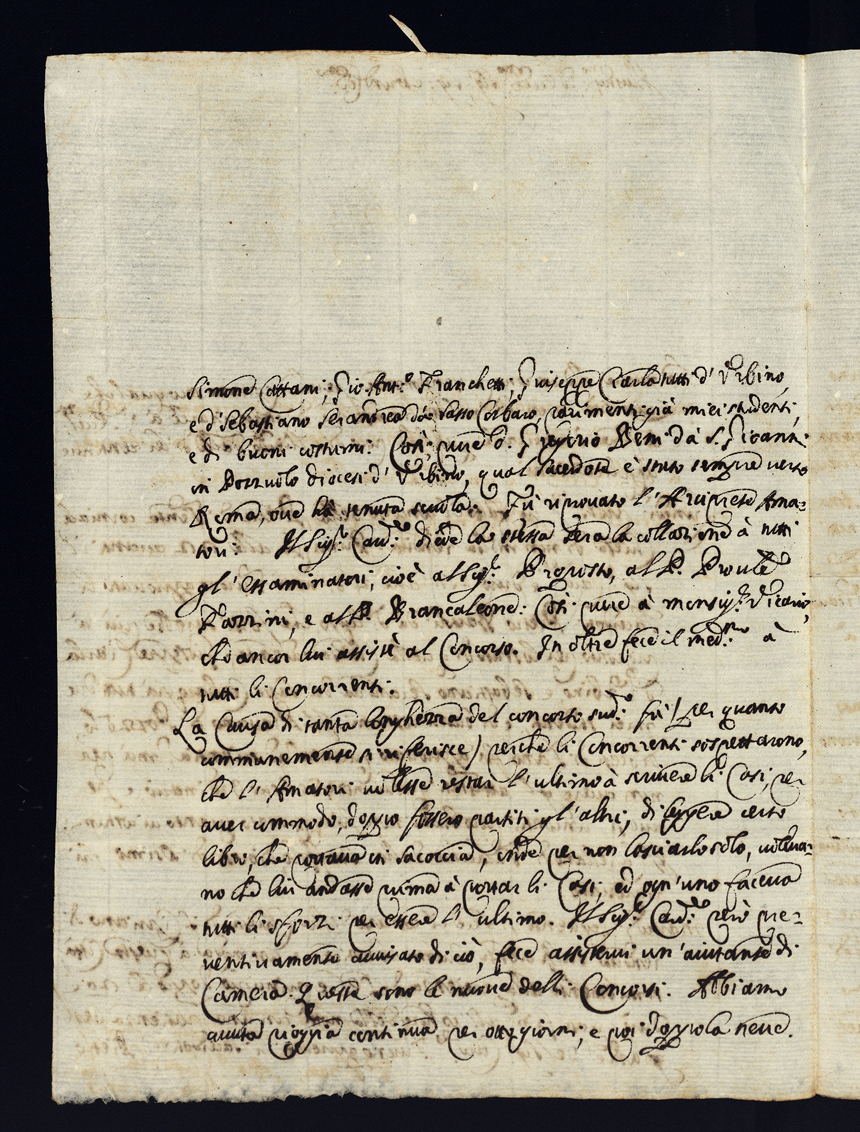 Simone Cattani, Gio. Ant.º Franchetti, Giuseppe Carla tutti d'Urbino,
e d. Sebastiano Serandrea da Sasso Corbaro, parimenti già miei studenti,
e di buoni costumi. Così pure d. Beni da S. Giovanni
in Pozzuolo diocesi d'Urbino, qual sacerdote è stato sempre verso
Roma, ove hà tenuta scuola. Fù riprovato l'Arciprete Ama=
tori. Il Sig.r Card.le diede la stessa sera la collazione à tutti
gl'essaminatori, cioè al Sig.r Proposto, al P. Proule
Pazzini, e al P. Brancaleone. Così pure à monsig.r Vicario,
che ancor lui assistè al Concorso. In oltre fece il med.mo à
tutti li Concorrenti.
La Causa di tanta longhezza del concorso sud.º fù (per quanto
communemente si riferisce) perche li Concorrenti sospettarono,
che l'Amatori volesse restar l'ultimo à scrivere li Casi, per
aver commodo, doppo fossero partiti gl'altri, di leggere certo
libro, che portava in saccoccia, onde per non lasciarlo solo, voleva=
no che lui andasse prima à portar li Casi, ed ogn'uno faceva
tutti li sforzi per essere l'ultimo. Il Sig.r Card.le però pre=
ventivamente avvisato di ciò, fece assistervi un'aiutante di
Camera. Queste sono le nuove delli Concorsi. Abbiamo
avuta pioggia continua per otto giorni, e poi doppo la neve.